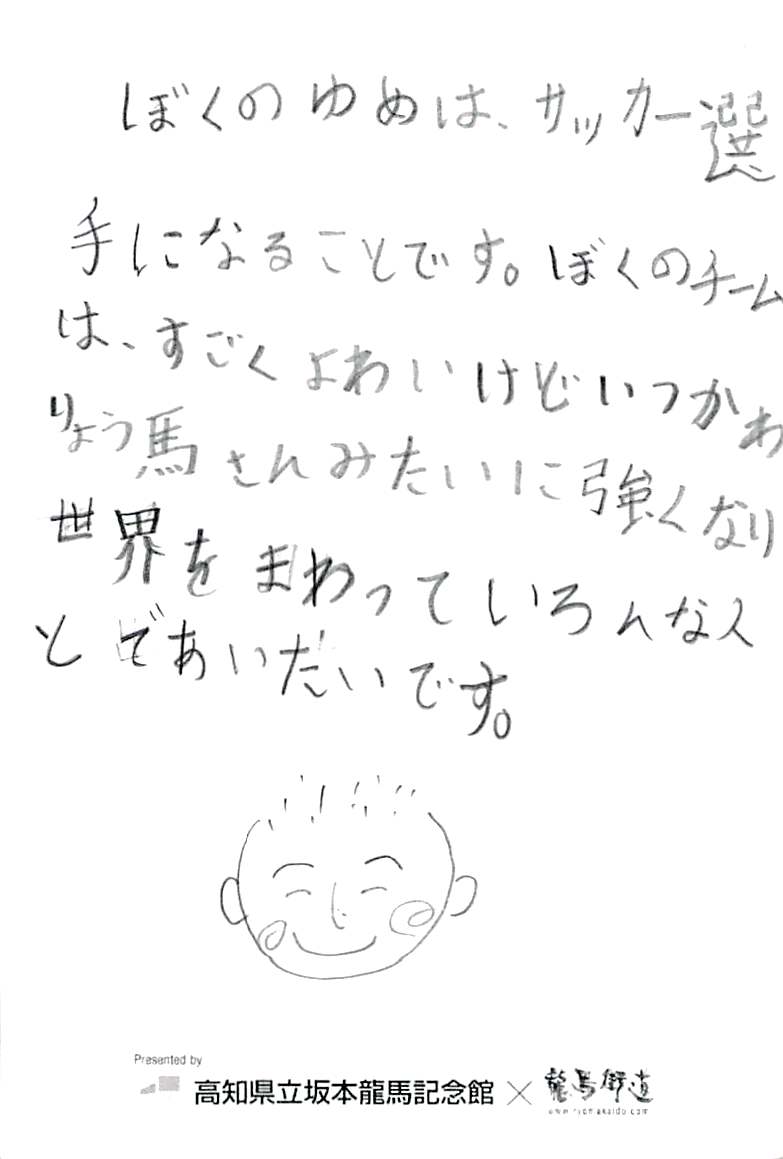 ぼくのゆめは、サッカー選
手になることです。ぼくのチーム
は、すごくよわいけどいつかあ
りょう馬さんみたいに強くなり
世界をまわっていろんな人
とであいだいです。
Presented by
高知県立坂本龍馬記念館×龍馬街道
www.ryomakaido.com